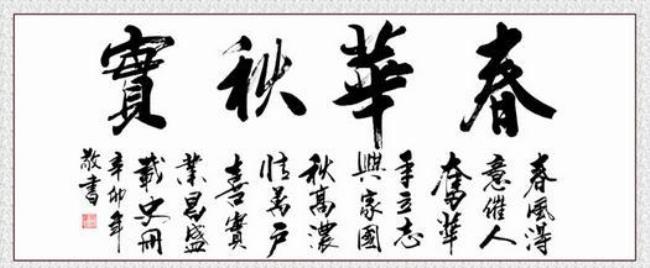 春華秋實
春風得
意催人
奮華
年立志
興家國
秋高濃
情萬戶
喜實
業昌盛
載史冊
辛卯年
敬書